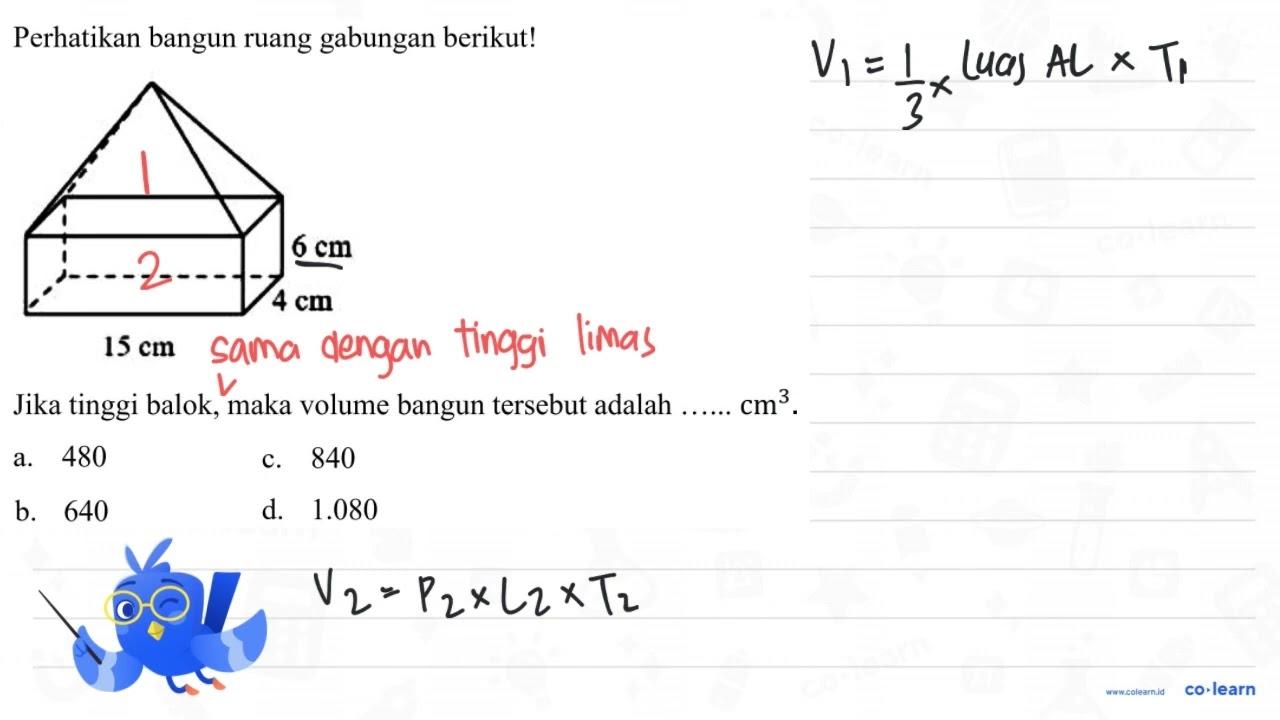 Perhatikan bangun ruang gabungan berikut!
V1 = 1/3 × Luas AL × T1
1
2
6 cm
4 cm
15 cm
sama dengan tinggi limas
Jika tinggi balok, maka volume bangun tersebut adalah ...... cm³.
a. 480
c. 840
b. 640
d. 1.080
V2 = P2 × L2 × T2
www.colearn.id
co·learn